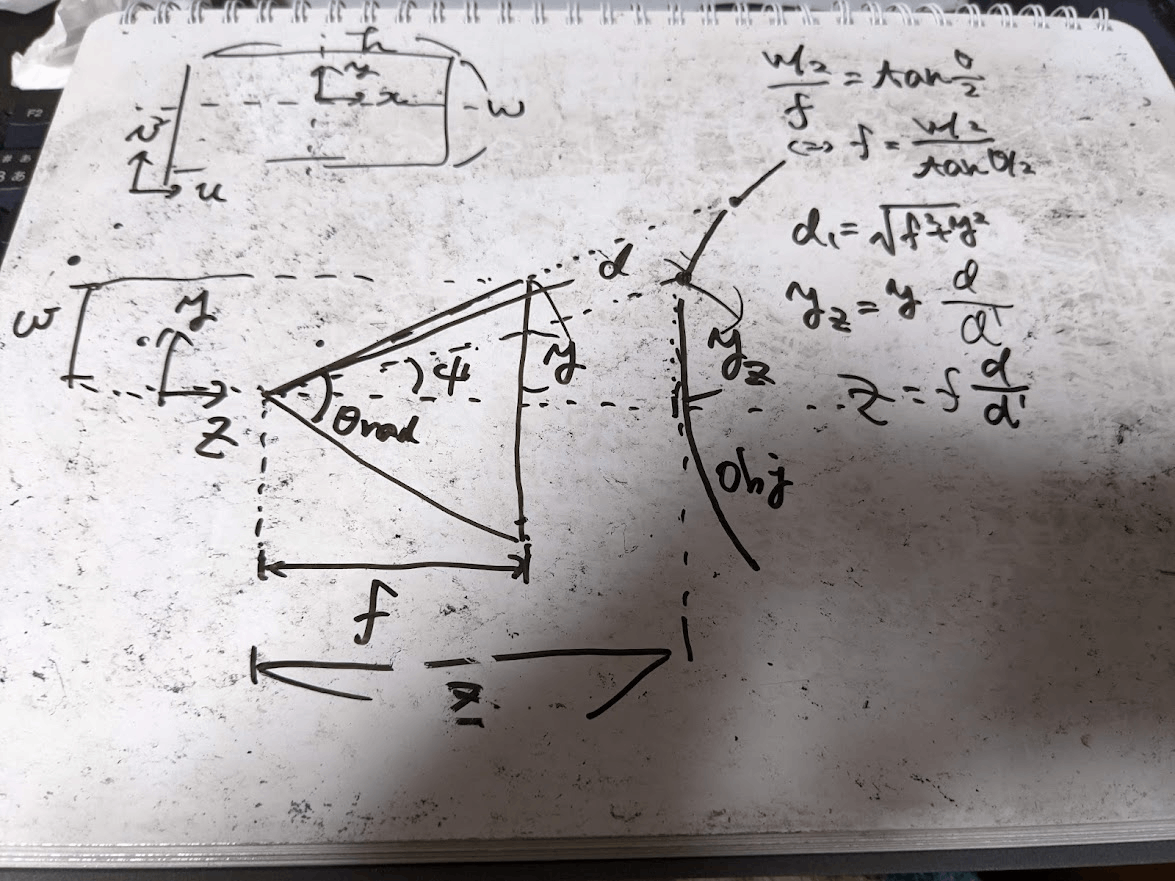 h
y
x
w
v
u
w/2 / f = tan θ/2
⇔ f = w/2 / tan θ/2
d₁ = √f²+y²
y_z = y d/d'
z = f d/d'
w
y
z
θrad
ψ
d
y
y_z
Obj
f
z
F2
あ